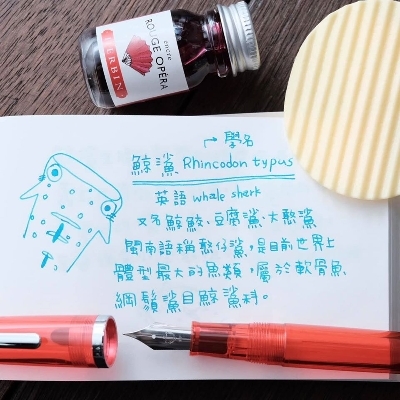 encre
ROUGE OPÉRA
HERBIN
學名
鯨鯊 Rhincodon typus
英語 whale sherk
又名鯨鮫、豆腐鯊、大憨鯊
閩南語稱憨仔鯊,是目前世界上
體型最大的魚類,屬於軟骨魚
綱鬚鯊目鯨鯊科。